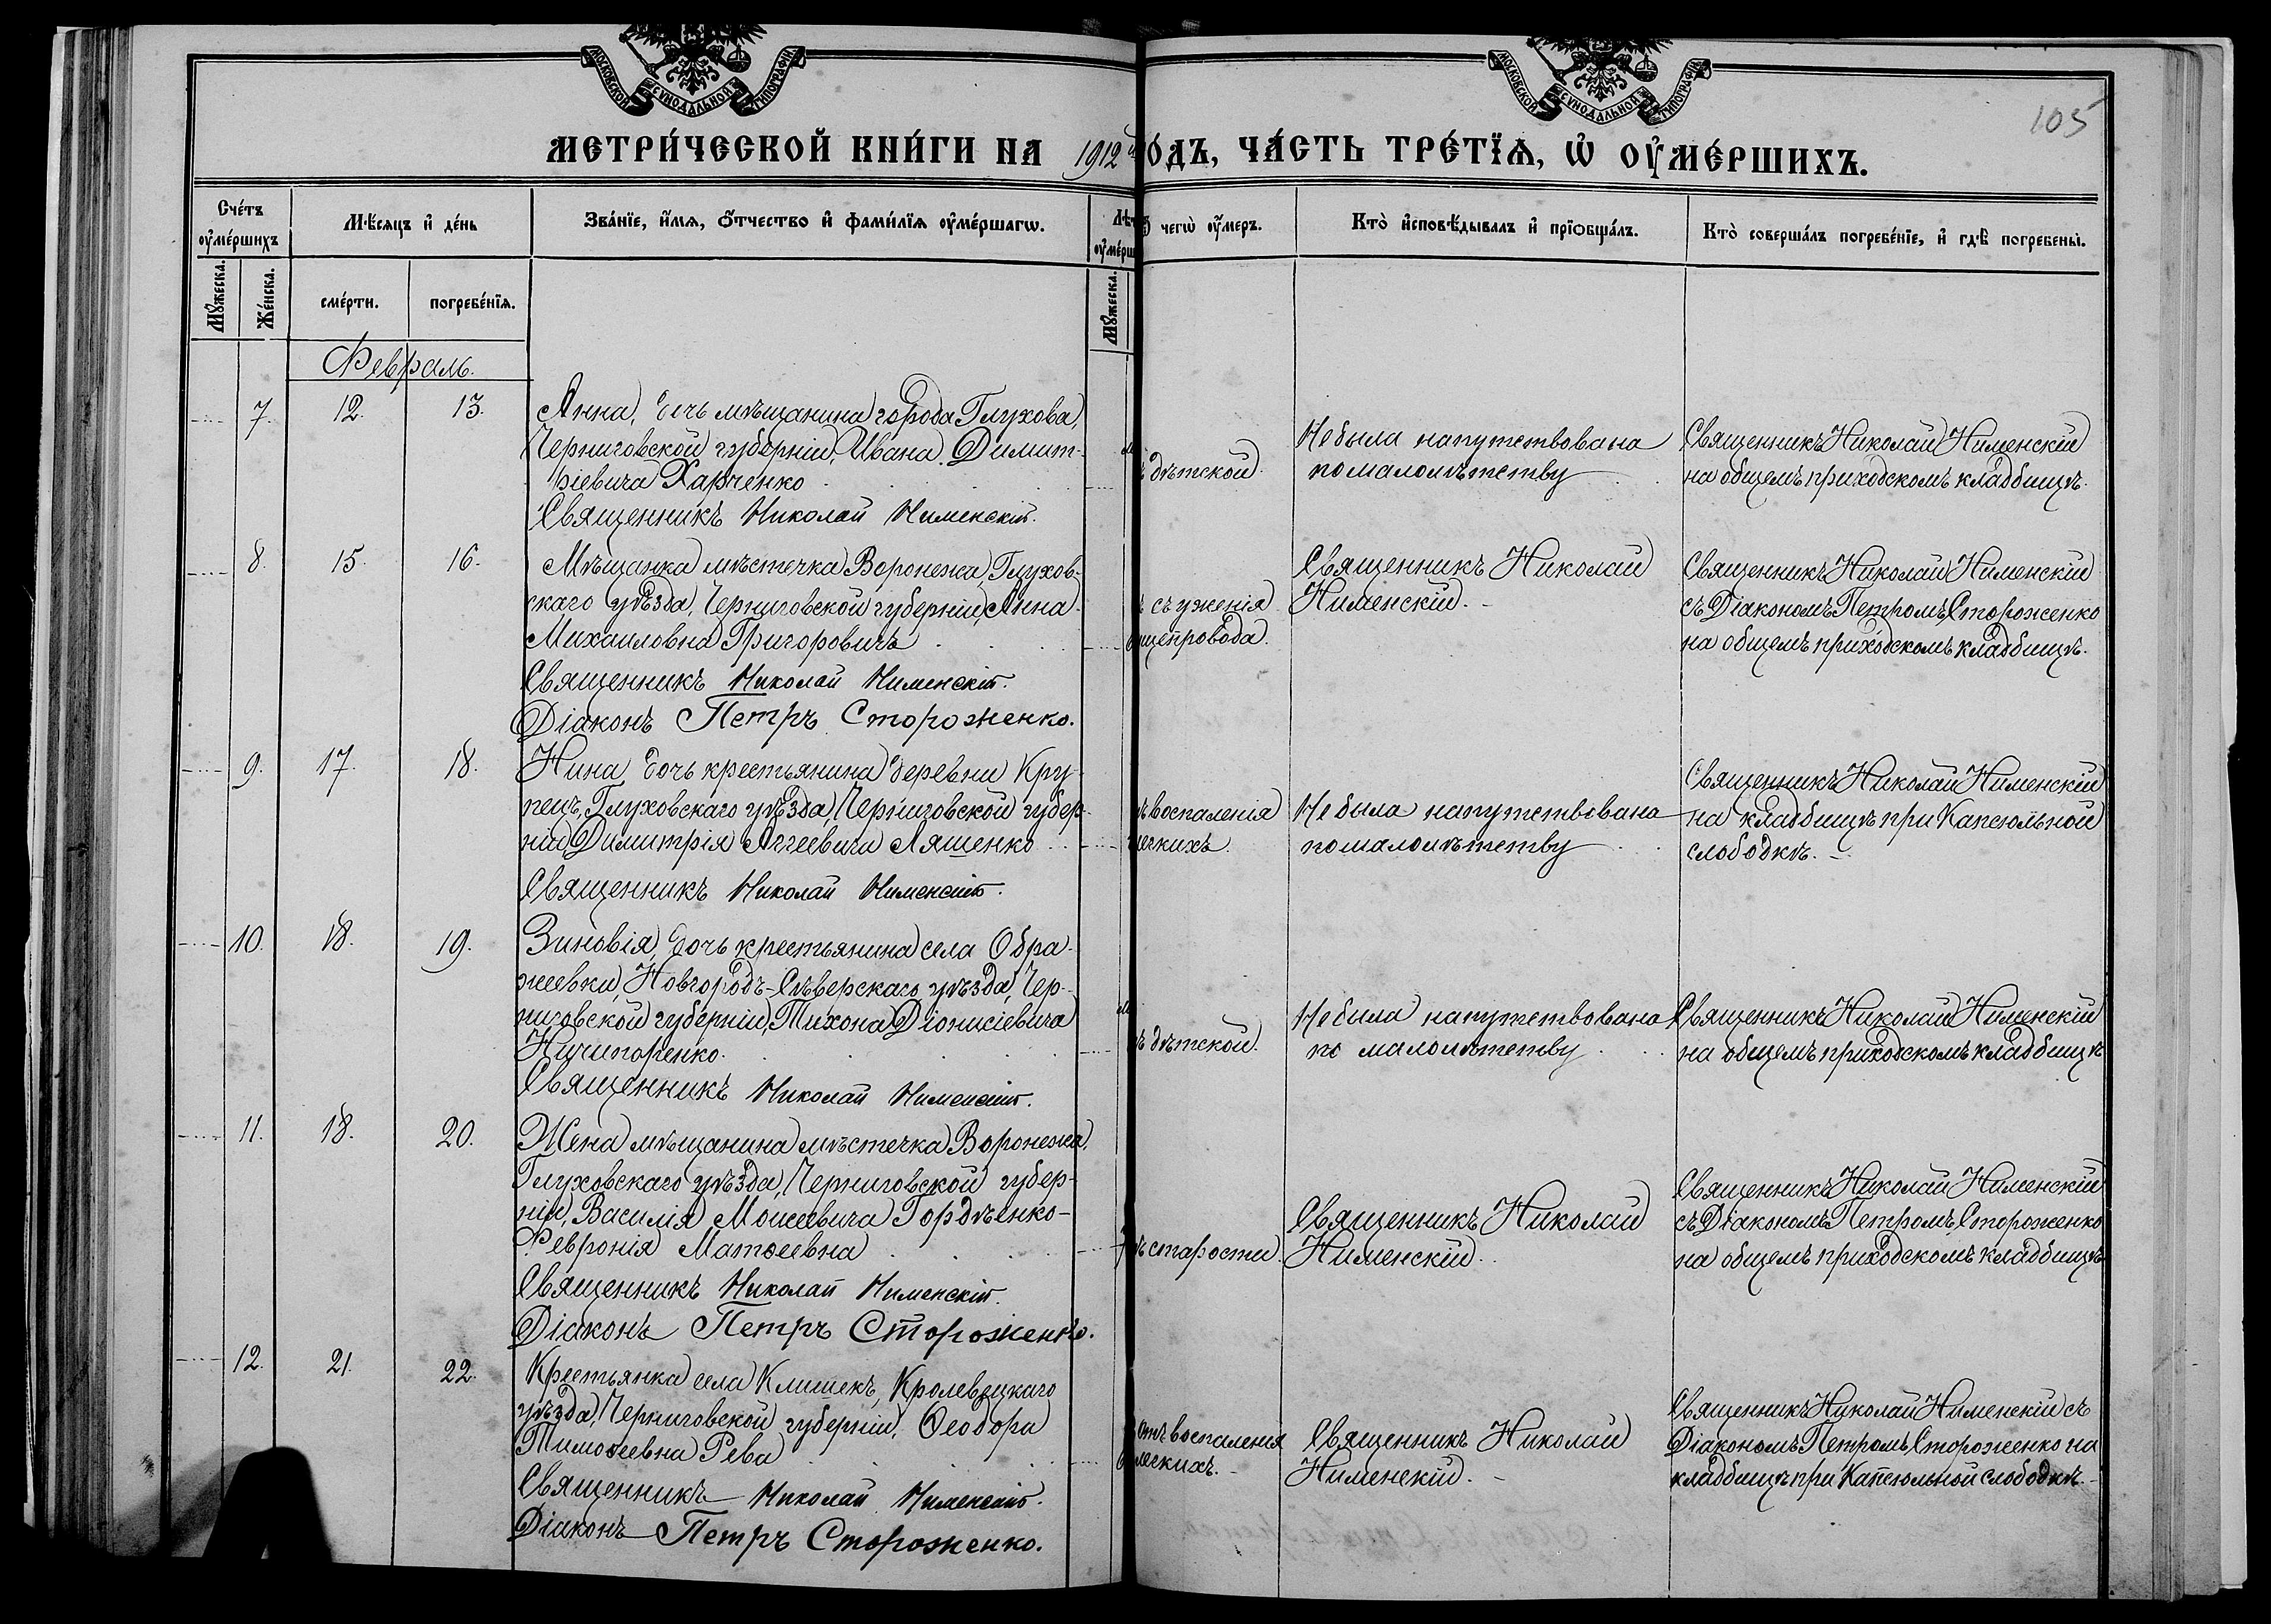 МОСКОВСКОЙ СУНОДАЛЬНОЙ ТИПОГРАФІИ
МОСКОВСКОЙ СУНОДАЛЬНОЙ ТИПОГРАФІИ
105
МЕТРИ́ЧЕСКОЙ КНИ́ГИ НА 1912 й
О́ДЪ, ЧА́СТЬ ТРЕ́ТЇѦ, Ѡ҆ ОУ҆МЕ́РШИХЪ.
Сче́тъ оу҆ме́ршихъ
Мꙋ́жеска.
Же́нска.
Мѣ́сяцъ и҆ де́нь
сме́рти.
погребе́нїя.
Зва́нїе, и҆́мя, Ѻ҆́тчество и҆ фами́лїя оу҆ме́ршагѡ.
Лѣт
оу҆ме́рш
Мꙋ́жеска.
Ѿ чегѡ̀ оу҆́меръ.
Кто̀ и҆сповѣ́дывалъ и҆ прїѻбща́лъ.
Кто̀ соверша́лъ погребе́нїе, и҆ гдѣ̀ погребены̀.
Февраль.
7. 12. 13.
Анна, дочь мѣщанина города Глухова,
Черниговской губерніи, Ивана Димит-
ріевича Харченко
Священникъ Николай Нименскій.
ъ дѣтской.
Не была напутствована
по малолѣтству
Священникъ Николай Нименскій
на общемъ приходскомъ кладбищѣ.
8. 15. 16.
Мѣщанка мѣстечка Воронежа, Глухов-
скаго уѣзда, Черниговской губерніи, Анна
Михаиловна Григоровичъ
Священникъ Николай Нименскій.
Діаконъ Петръ Стороженко.
ъ съуженія
ищепровода.
Священникъ Николай
Нименскій.
Священникъ Николай Нименскій
съ Діакономъ Петромъ Стороженко
на общемъ приходскомъ кладбищѣ.
9. 17. 18.
Нина, дочь крестьянина деревни Кру-
пецъ, Глуховскаго уѣзда, Черниговской губер-
ніи Димитрія Аггеевича Ляшенко
Священникъ Николай Нименскій.
ъ воспаленія
легкихъ.
Не была напутствована
по малолѣтству
Священникъ Николай Нименскій
на кладбищѣ при Капсюльной
слободкѣ.
10. 18. 19.
Зиновія, дочь крестьянина села Обра-
жеевки, Новгородъ-Сѣверскаго уѣзда, Чер-
ниговской губерніи, Тихона Діонисіевича
Ничипоренко.
Священникъ Николай Нименскій.
ъ дѣтской.
Не была напутствована
по малолѣтству
Священникъ Николай Нименскій
на общемъ приходскомъ кладбищѣ
11. 18. 20.
Жена мѣщанина мѣстечка Воронежа,
Глуховскаго уѣзда, Черниговской губер-
ніи, Василія Моисеевича Гордѣенко-
Февронія Матѳеевна
Священникъ Николай Нименскій.
Діаконъ Петръ Стороженко.
ъ старости.
Священникъ Николай
Нименскій.
Священникъ Николай Нименскій
съ Діакономъ Петромъ Стороженко
на общемъ приходскомъ кладбищѣ
12. 21. 22.
Крестьянка села Клишекъ, Кролевецкаго
уѣзда, Черниговской губерніи, Ѳеодора
Тимоѳеевна Рева
Священникъ Николай Нименскій.
Діаконъ Петръ Стороженко.
отъ воспаленія
легкихъ.
Священникъ Николай
Нименскій.
Священникъ Николай Нименскій съ
Діакономъ Петромъ Стороженко на
кладбищѣ при Капсюльной слободкѣ.